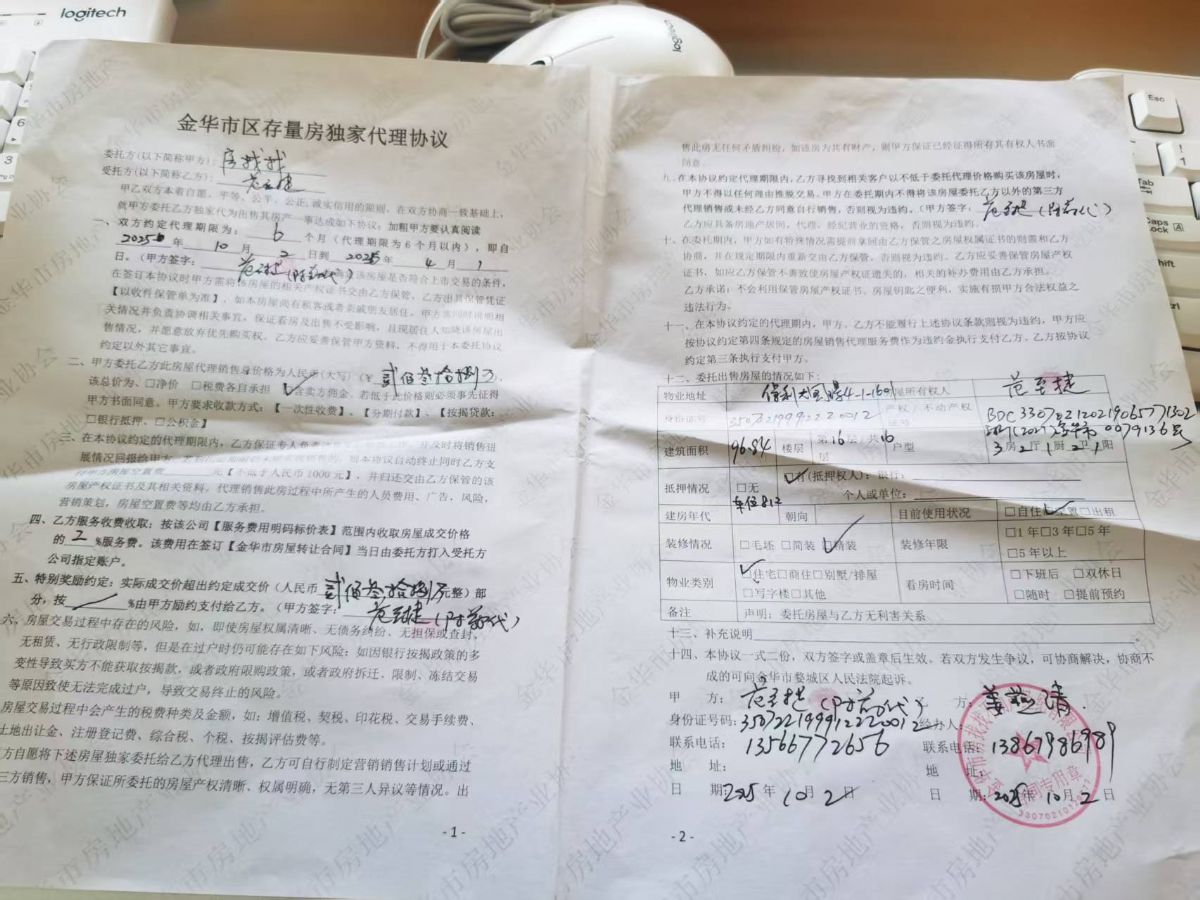 logitech
logitech
金华市区存量房独家代理协议
委托方(以下简称甲方)：房找找
受托方(以下简称乙方)：范至捷
甲乙双方本着自愿、平等、公平、公正、诚实信用的原则，在双方协商一致基础上，
就甲方委托乙方独家代为出售其房产一事达成如下协议：加粗甲方要认真阅读
一、双方约定代理期限为：6个月（代理期限为6个月以内），即自
2025年10月2日到 年4月1
日。（甲方签字：范至捷
在签订本协议时甲方需将该房屋的相关产权证书交由乙方保管，乙方出具保管凭证
【以收件保管单为准】，如本房屋尚有租客或者亲戚朋友居住，甲方
关情况并负责协调相关事宜，保证看房及出售不受影响，且现居住人知晓该房屋出
售情况，并愿意放弃优先购买权。乙方应妥善保管甲方资料，不得用于本委托协议
约定以外其它事宜。
二、甲方委托乙方此房屋代理销售总价格为人民币(大写)（¥贰佰叁拾捌万
该总价为、□净价 □税费各自承担 含卖方佣金。若低于此价格则必须事先征得
甲方书面同意。甲方要求收款方式：【一次性收费】、【分期付款】、【按揭贷款：
□银行抵押、□公积金】
三、在本协议约定的代理期限内，乙方保证专人负责 及时将销售进
展情况回报给甲方， 本协议自动终止同时乙方支
付甲方房屋空置费 元【不低于人民币1000元】，并归还交由乙方保管的该
房屋产权证书及其相关资料。代理销售此房过程中所产生的人员费用、广告，风险，
营销策划，房屋空置费等均由乙方承担。
四、乙方服务收费收取：按该公司【服务费用明码标价表】范围内收取房屋成交价格
的2%服务费。该费用在签订【金华市房屋转让合同】当日由委托方打入受托方
公司指定账户。
五、特别奖励约定：实际成交价超出约定成交价（人民币贰佰叁拾捌万元整）部
分，按 %由甲方励约支付给乙方。（甲方签字：范至捷
六、房屋交易过程中存在的风险，如，即使房屋权属清晰、无债务纠纷、无担保或查封、
无租赁、无行政限制等，但是在过户时仍可能存在如下风险：如因银行按揭政策的多
变性导致买方不能获取按揭款，或者政府限购政策，或者政府拆迁、限制、冻结交易
等原因致使无法完成过户，导致交易终止的风险。
房屋交易过程中会产生的税费种类及金额，如：增值税、契税、印花税、交易手续费、
土地出让金、注册登记费、综合税、个税、按揭评估费等。
方自愿将下述房屋独家委托给乙方代理出售，乙方可自行制定营销销售计划或通过
三方销售，甲方保证所委托的房屋产权清晰、权属明确，无第三人异议等情况。出
-1-
售此房无任何矛盾纠纷，如该房为共有财产，则甲方保证已经征得所有其有权人书面
同意。
九、在本协议约定代理期限内，乙方寻找到相关客户以不低于委托代理价格购买该房屋时，
甲方不得以任何理由推脱交易，甲方在委托期内不得将该房屋委托乙方以外的第三方
代理销售或未经乙方同意自行销售，否则视为违约。（甲方签字：范至捷
乙方应具备房地产居间，代理、经纪营业的资格，否则视为违约。
十、在委托期内，甲方如有特殊情况需提前拿回由乙方保管之房屋权属证书的则需和乙方
协商，并在规定期限内重新交由乙方保管，否则视为违约。乙方应妥善保管房屋产权
证书，如应乙方保管不善致使房屋产权证遗失的，相关的补办费用由乙方承担。
乙方承诺：不会利用保管房屋产权证书、房屋钥匙之便利，实施有损甲方合法权益之
违法行为。
十一、在本协议约定的代理期内，甲方、乙方不能履行上述协议条款则视为违约，甲方应
按协议约定第四条规定的房屋销售代理服务费作为违约金执行支付乙方。乙方按协议
约定第三条执行支付甲方。
十二、委托出售房屋的情况如下：
物业地址 保利大国璟4-1-1601 房屋所有权人 范至捷
身份证号 产权/不动产权证号
建筑面积 96.84 楼层 第16层/共16层 户型 3房2厅1厨2卫1阳
抵押情况 □无 有(抵押权人)：银行：
个人或单位：
车位812
建房年代 朝向 目前使用状况 □自住 空置□出租
装修情况 □毛坯 □简装 精装 装修年限 □1年□3年□5年
□5年以上
物业类别 住宅□商住□别墅/排屋 看房时间 □下班后 □双休日
□写字楼□其他 □随时 □提前预约
备注 声明：委托房屋与乙方无利害关系
十三、补充说明
十四、本协议一式二份，双方签字或盖章后生效。若双方发生争议，可协商解决，协商不
成的可向金华市婺城区人民法院起诉。
甲 方：范至捷 方：姜燕清
身份证号码：350722199912220012 经办人：
联系电话：13566772656 联系电话：13867986989
地 址： 地 址：
日 期：2025年10月2日 日 期：2025年10月2日
合同专用章
-2-